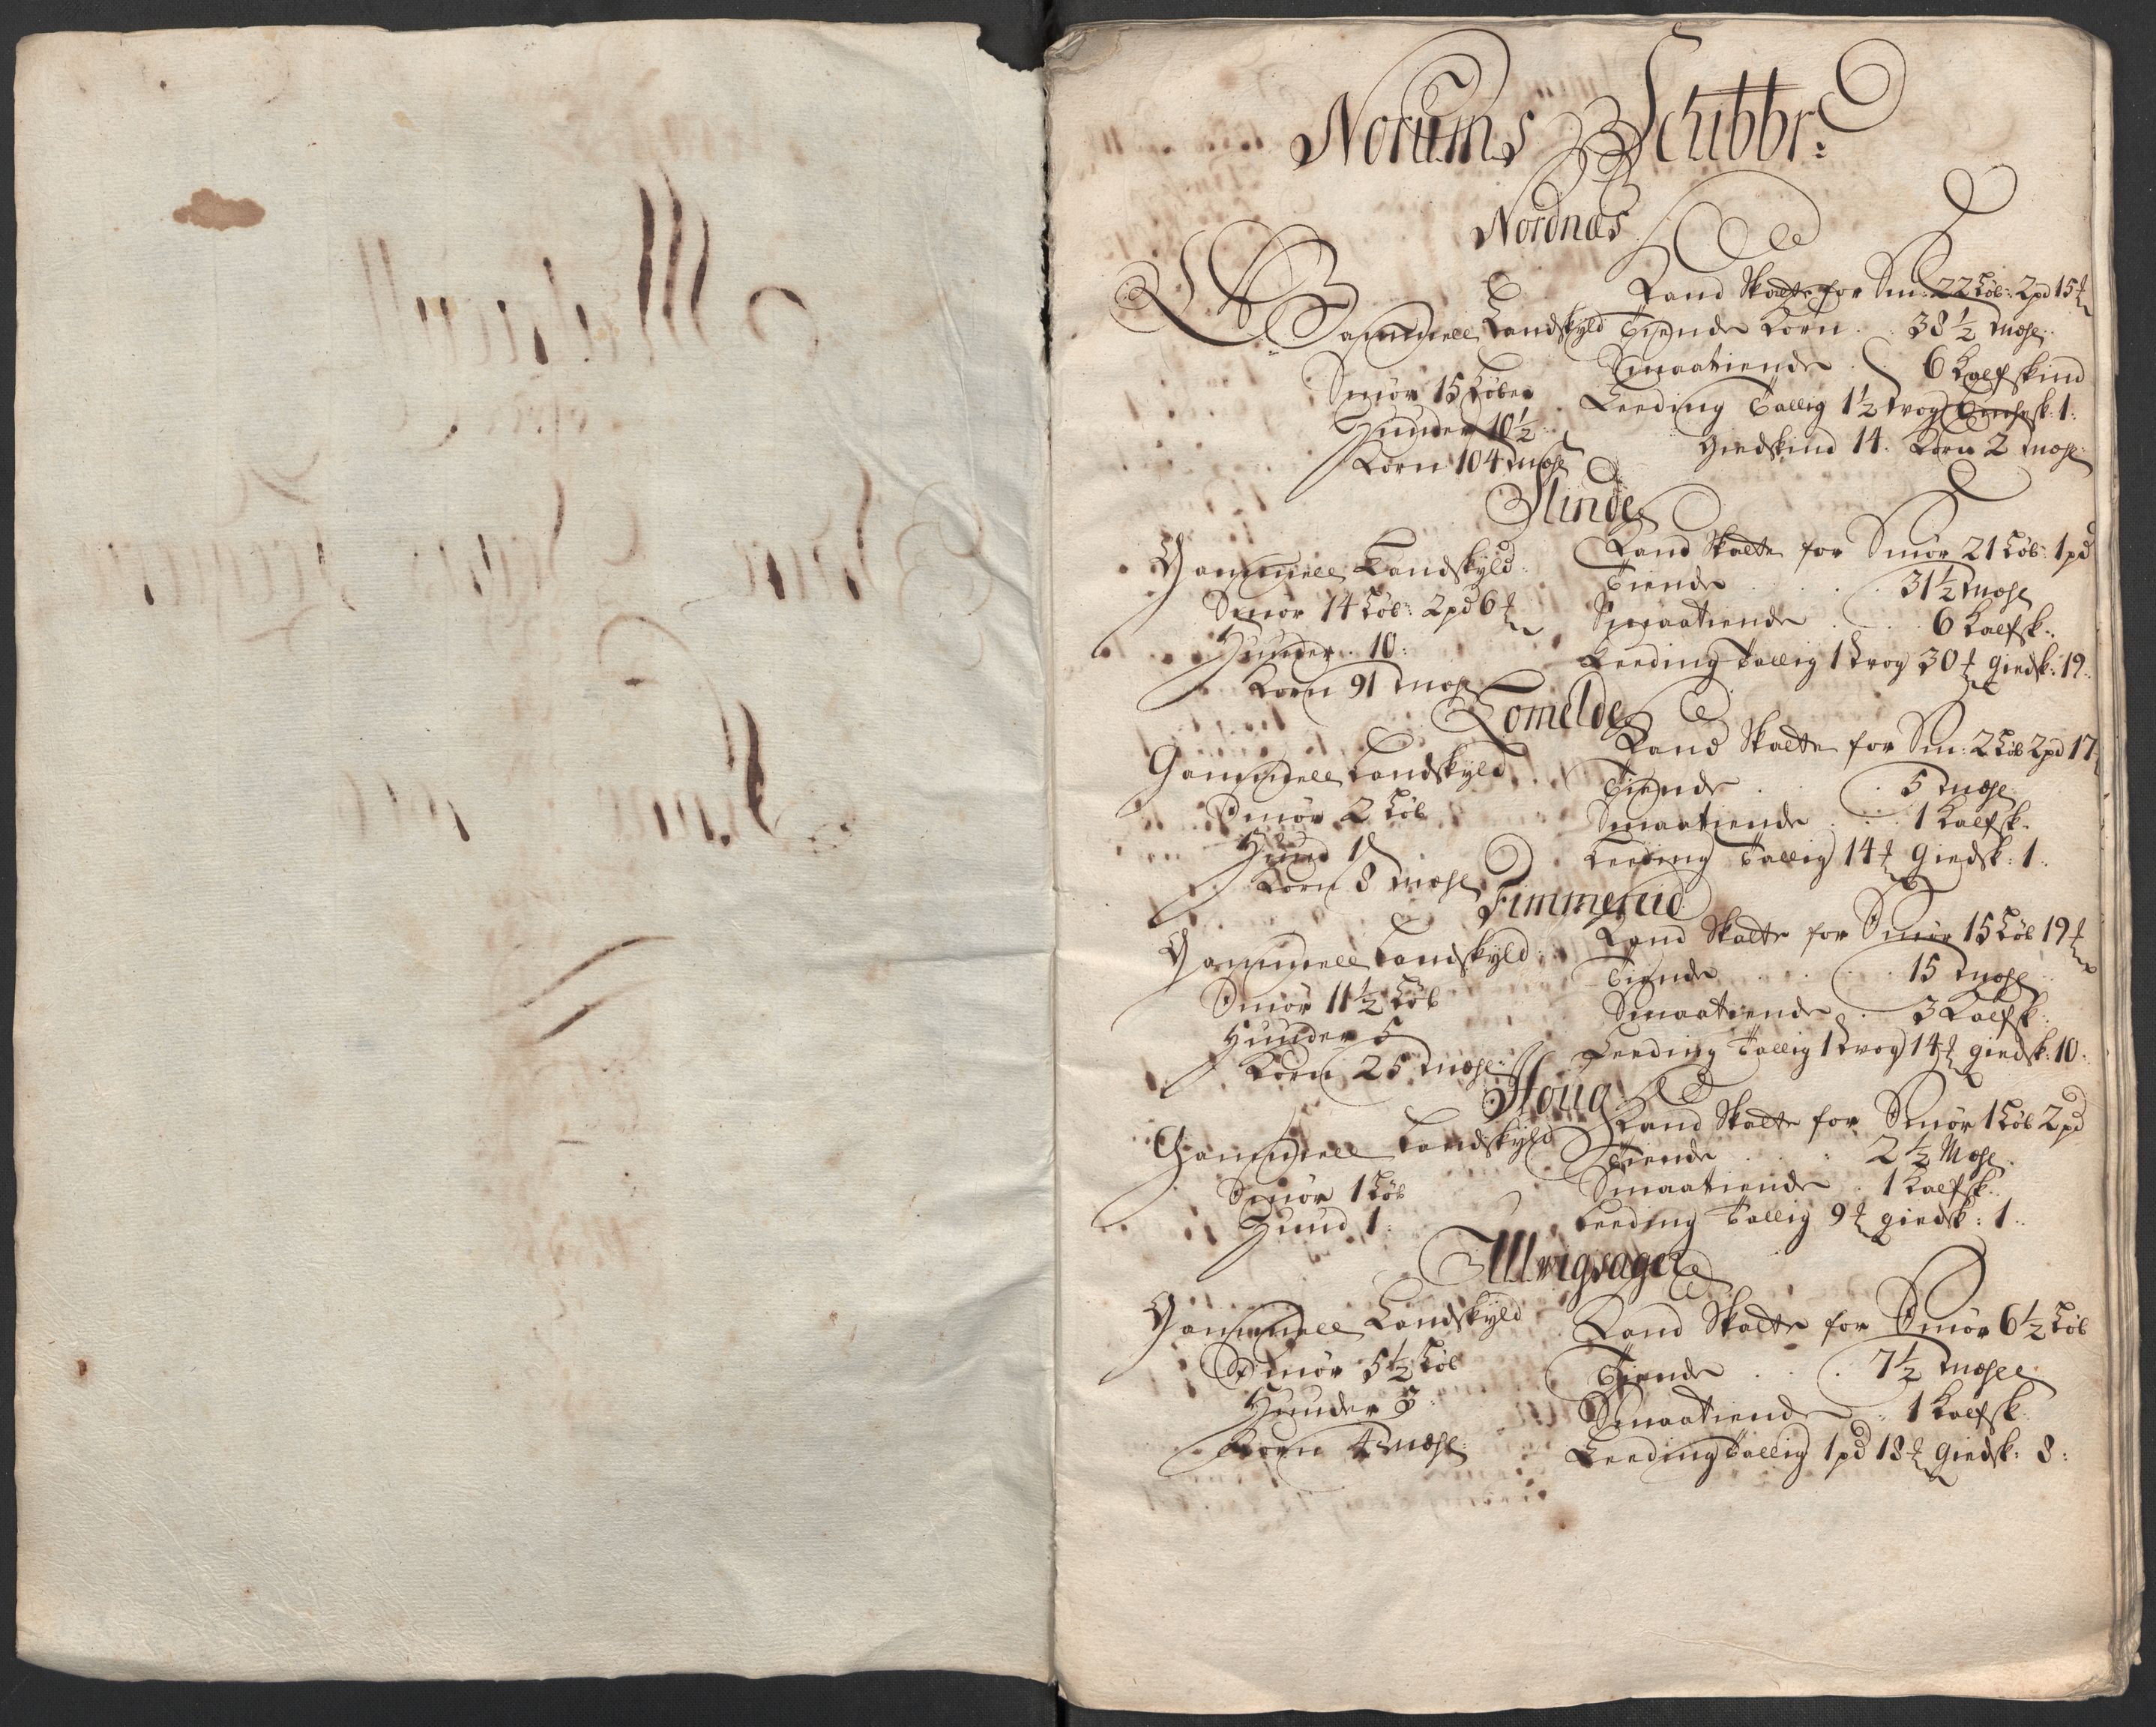 Norums Schibbr:
Nordnæs
Gammell Landskyld
Smör 15 Löber
Huuder 10½
Korn 104 mæhl
Land Skatte for Sm: 22 Löb: 2pd 15
Tiende Korn . . 38½ mæhl:
Smaatiende . 6 Kalfskind
Leeding Tallig 1½ trog sk: 1:
Giedskind 14. Korn 2 mæhl
Slinde
Gammell Landskyld
Smör 14 Löb: 2pd 6
Huuder . 10:
Korn 91 mæhl
Land Skatte for Smör 21 Löb: 1pd
Tiende . . . 31½ mæhl
Smaatiende . . 6 Kalfsk:
Leeding Tallig 1 trog 30 giedsk: 19:
Lomelde
Gammell Landskyld
Smör 2 Löb
Huud 1
Korn 8 mæhl
Land Skatte for Sm: 2 Löb 2pd 17
Tiende . . 5 mæhl
Smaatiende . . 1 Kalfsk.
Leeding Tallig 14 Giedsk: 1.
Fimmereid
Gammell Landskyld
Smör 11½ Löb
Huuder 5
Korn 25 mæhl:
Land Skatte for Smör 15 Löb 19
Tiende . . . 15 mæhl
Smaatiende . 3 Kalfsk:
Leeding Tallig 1 trog 14 giedsk: 10.
Houg
Gammell Landskyld
Smör 1 Löb
Huud 1:
Land Skatte for Smör 1 Löb 2pd
Tiende . . 2½ Mæhl.
Smaatiende . 1 Kalfsk:
Leeding Tallig 9 giedsk: 1.
Ullvigsager
Gammell Landskyld
Smör 5½ Löb
Huuder 3:
Korn 4 mæhl:
Land Skatte for Smör 6½ Löb
Tiende . . . 7½ mæhle
Smaatiende . 1 Kalfsk:
Leeding Tallig 1pd 18 Giedsk: 8: